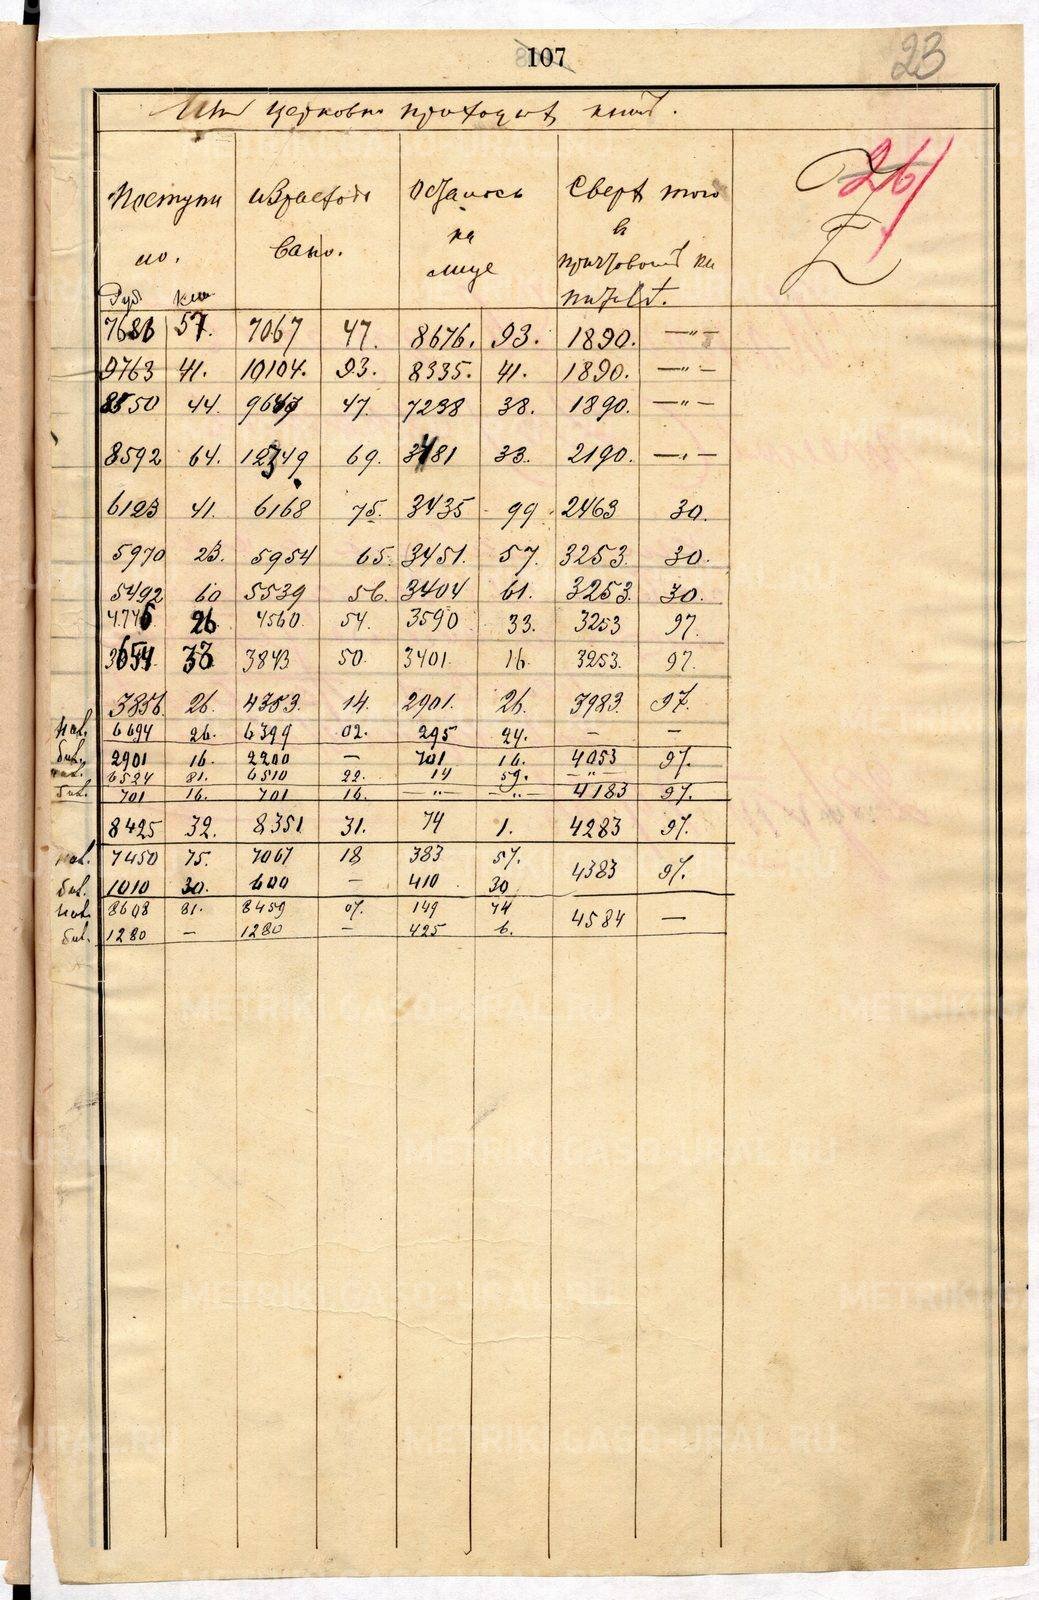 107
23
церковн приходъ книг.
261
Поступи
ло.
Израсходо
вано.
Осталось
на
лице
Сверх того
в
причтовомъ ка
питал.
Руб коп
57. 7067 47. 8676. 93. 1890. —"—
9763 41. 10104. 93. 8335. 41. 1890. —"—
8550 44. 47. 7238 38. 1890. —"—
8592 64. 69. 3481 33. 2190. —"—
6123 41. 6168 75. 3435 99 2463 30.
5970 23. 5954 65. 3451. 57. 3253. 30.
5492 60 5539 56. 3404 61. 3253. 30.
4746 26 4560. 54. 3590 33. 3253 97.
33 3843 50. 3401. 16. 3253. 97.
3856 26. 4353. 14. 2901. 26. 3983. 97.
нал. 6694 26. 6399 02. 295 24. — —
бил. 2901 16. 2200 — 701 16. 4053 97.
нал. 6524 81. 6510 22. 14 59. —"—
бил. 701 16. 701 16. —"— —"— 4183 97.
8425 32. 8351 31. 74 1. 4283 97.
нал. 7450 75. 7067 18 383 57. 4383 97.
бил. 1010 30. 600 — 410 30
нал. 8608 81. 8459 07. 149 74 4584 —
бил. 1280 — 1280 — 425 6.
METRIKI.GASO-URAL.RU